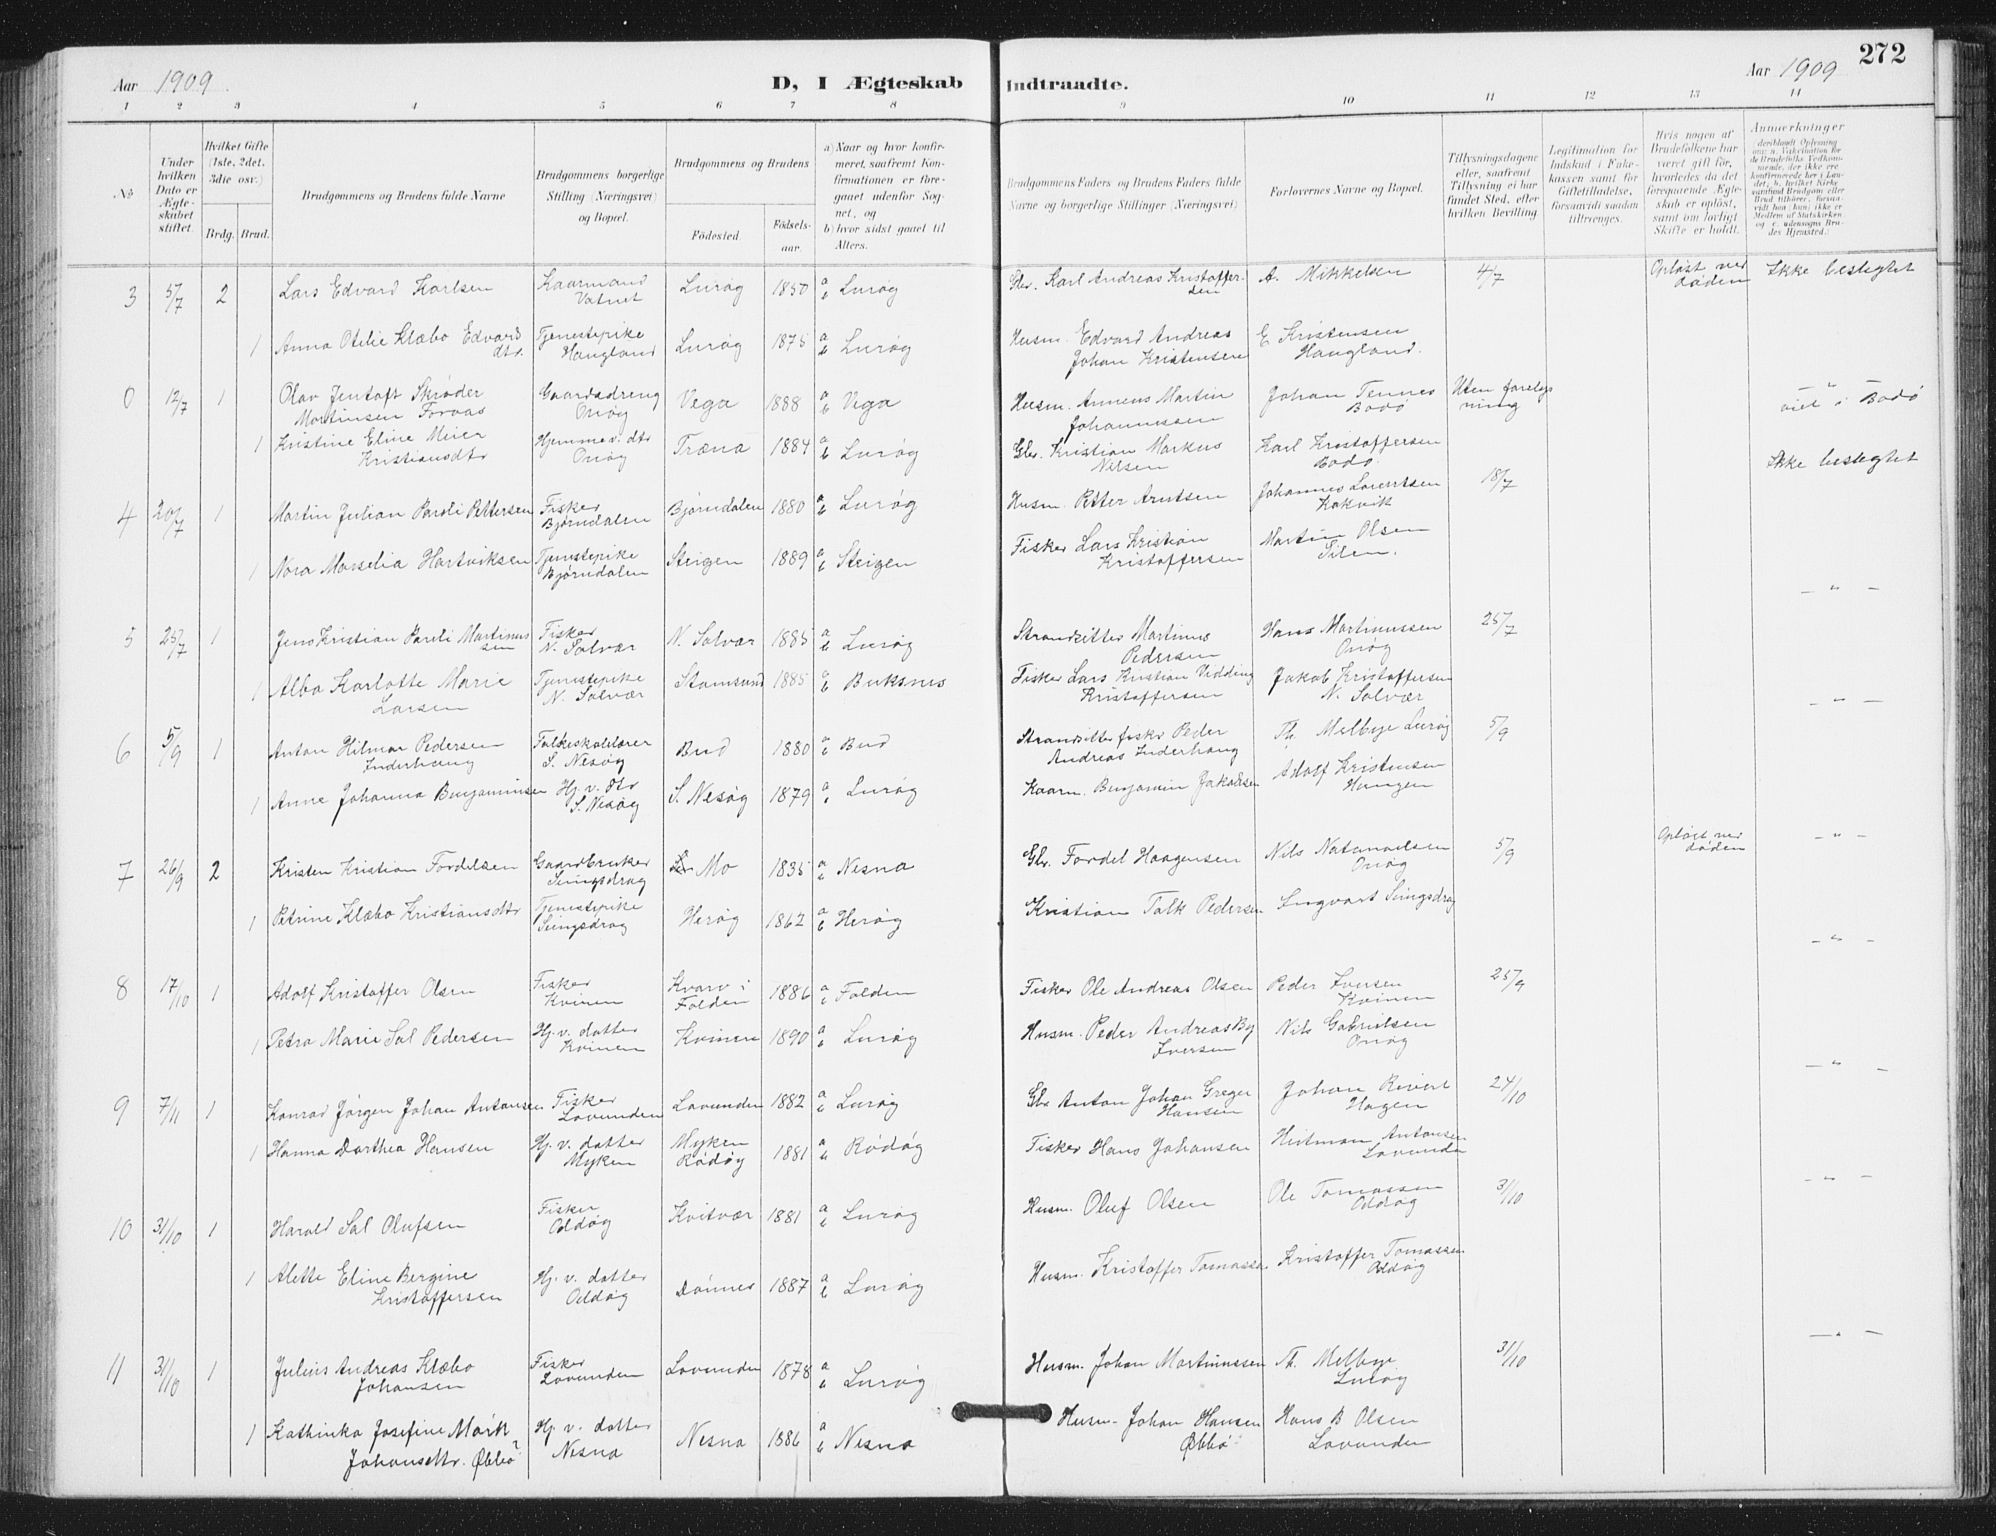 272
Aar 1909
D, I Ægteskab Indtraadte.
Aar 1909
1 2 3 4 5 6 7 8 9 10 11 12 13 14
№
Under hvilken Dato er Ægteskabet stiftet.
Hvilket Gifte (1ste, 2det, 3die osv.)
Brdg. Brud.
Brudgommens og Brudens fulde Navne
Brudgommens borgerlige Stilling (Næringsvei) og Bopæl.
Brudgommens og Brudens
Fødested.
Fødselsaar.
a) Naar og hvor konfirmeret, saafremt Konfirmationen er foregaaet udenfor Sognet, og
b) hvor sidst gaaet til Alters.
Brudgommens Faders og Brudens Faders fulde Navne og borgerlige Stillinger (Næringsvei)
Forlovernes Navne og Bopæl.
Tillysningsdagene eller, saafremt Tillysning ei har fundet Sted, efter hvilken Bevilling
Legitimation for Indskud i Enkekassen samt for Giftetilladelse, forsaavidt saadan tiltrænges.
Hvis nogen af Brudefolkene har været gift før, hvorledes da det foregaaende Ægteskab er opløst, samt om lovligt Skifte er holdt.
Anmærkninger
3 5/7 2 Lars Edvard Karlsen Kaarmand Vatnet Lurøy 1850 a b Lurøy Gbr. Karl Andreas Kristoffersen A. Mikkelsen 4/7 Opløst ved døden Ikke beslegtet
1 Anna Otelie Klæbo Edvardsdtr. Tjenestepike Haugland Lurøy 1875 a b Lurøy Husm. Edvard Andreas Johan Kristensen E Kristensen Haugland.
0 12/7 1 Olav Jentoft Skrøder Martinsen Forvas Gaardsdreng Onøy Vega 1888 a b Vega Husm. Annens Martin Johannessen Johan Tennes Bodø Uten forelysning viet i Bodø
1 Kristine Eline Meier Kristiansdtr Hjemmev. dtr Onøy Træna 1884 a b Lurøy Gbr. Kristian Markus Nilsen Karl Kristoffersen Bodø.
4 20/7 1 Martin Julian Pauli Pettersen Fisker Bjørndalen Bjørndalen 1880 a b Lurøy Husm. Petter Arntsen Johannes Lorentsen Kokvik 18/7 Ikke beslegtet
1 Nora Marselia Hartviksen Tjenestepike Bjørndalen Steigen 1889 a b Steigen Fisker Lars Kristian Kristoffersen Martin Olsen Silen.
5 25/7 1 Jens Kristian Pauli Martinussen Fisker N. Solvær N. Solvær 1885 a b Lurøy Strandsitter Martinus Pedersen Hans Martinussen Onøy 25/7 - " -
1 Alba Karlotte Marie Larsen Tjenestepike N. Solvær Stamsund 1885 a b Buksnes Fisker Lars Kristian Vidding Kristoffersen Jakob Kristoffersen N. Solvær
6 5/9 1 Anton Hilmar Pedersen Inderhaug Folkeskolelærer S. Nesøy Bud 1880 a b Bud Strandsitter fisker Peder Andreas Inderhaug Th. Melbye Lurøy 5/9 - " -
1 Anne Johanna Benjaminsen Hj. v. dtr S. Nesøy S. Nesøy 1879 a b Lurøy Kaarm. Benjamin Jakobsen Adolf Kristensen Haugen
7 26/9 2 Kristen Kristian Fordelsen Gaardbruker Seingsdrag Mo 1835 a b Nesna Gbr. Fordel Haagensen Nils Natanaelsen Onøy 5/9 Opløst ved døden - " -
1 Petrine Klæbo Kristiansdtr Tjenestepike Seingsdrag Herøy 1862 a b Herøy Kristian Falk Pedersen Ingvart Seingsdrag
8 17/10 1 Adolf Kristoffer Olsen Fisker Kvinen Kvarv i Folden 1886 a b Folden Fisker Ole Andreas Olsen Peder Iversen Kvinen 25/9 - " -
1 Petra Marie Sal Pedersen Hj. v. datter Kvinen Kvinen 1890 a b Lurøy Husm. Peder Andreas By Iversen Nils Gabrielsen Onøy
9 7/11 1 Konrad Jørgen Johan Antonsen Fisker Lovunden Lovunden 1882 a b Lurøy Gbr Anton Johan Greger Hansen Johan Rivert Hagen 24/10 - " -
1 Hanna Darthea Hansen Hj. v. datter Myken Myken Rødøy 1881 a b Rødøy Fisker Hans Johansen Heitman Antonsen Lovunden
10 31/10 1 Harald Sal Olufsen Fisker Oddøy Kvitvær 1881 a b Lurøy Husm. Oluf Olsen Ole Tomassen Oddøy 31/10 - " -
1 Alette Eline Bergine Kristoffersen Hj. v. datter Oddøy Dønnes 1887 a b Lurøy Husm. Kristoffer Tomassen Kristoffer Tomassen Oddøy
11 31/10 1 Julius Andreas Klæbo Johansen Fisker Lovunden Lovunden 1878 a b Lurøy Husm. Johan Martinussen Th. Melbye Lurøy 31/10 - " -
1 Kathinka Josefine Mørk Johansdtr. Øbbø Hj. v. datter Nesna Nesna 1886 a b Nesna Husm. Johan Hansen Øbbø Hans B Olsen Lovunden